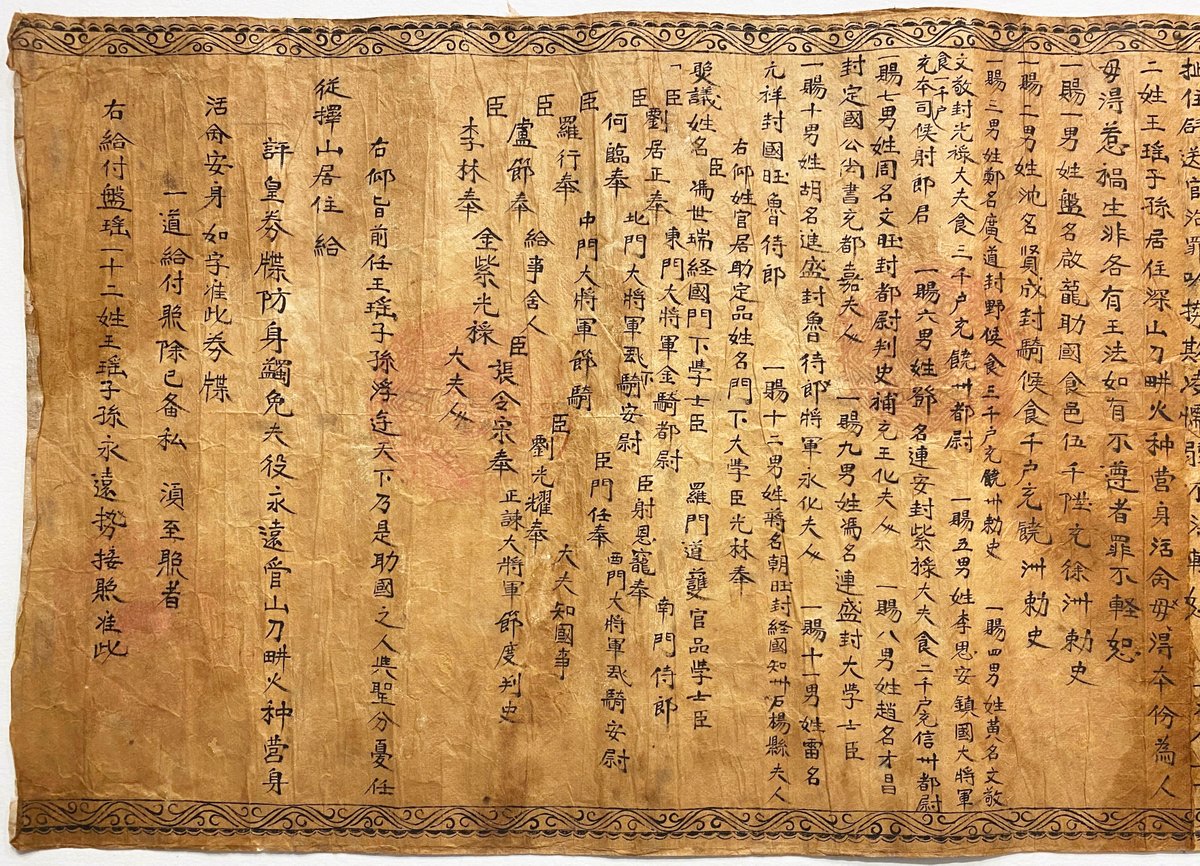 二姓王瑤子孫居住深山刀畊火种营身活命毋得本份為人
毋得惹禍生非各有王法如有不尊者罪不軽恕
一賜一男姓盤名啟龍助國食邑伍千陞充徐洲勅史
一賜二男姓沈名賢成封騎候食千户充饒洲勅史
一賜三男姓鄭名廣道封野候食三千户充饒卅勅史 一賜四男姓黃名文敬
文敬封光祿大夫食三千户充饒卅都尉 一賜五男姓李思安鎮國大將軍
食一千户
充本司候射郎君 一賜六男姓鄧名連安封紫祿大夫食二千户充信卅都尉
一賜七男姓周名文旺封都尉判史補充王化夫人 一賜八男姓趙名才昌
封定國公尚書充都嘉夫人 一賜九男姓馮名連盛封大學士臣
一賜十男姓胡名進盛封魯待郎將軍永化夫人 一賜十一男姓雷名
元祥封國旺魯待郎 一賜十二男姓蔣名朝旺封経國知卅石楊縣夫人
右仰姓官居助定品姓名門下大学臣光林奉
議姓名 臣馮世瑞経國門下學士臣 羅門道護官品學士臣
臣劉居正奉 東門大將軍金騎都尉 臣射恩寵奉 南門侍郎
臣何臨奉 北門大將軍飛騎安尉 臣門任奉 西門大將軍飛騎安尉
臣羅行奉 中門大將軍節騎 臣劉光耀奉 大夫知國事
臣盧節奉 給事舍人 臣張令宗奉 正諫大將軍節度判史
臣李林奉 金紫光祿大夫人
右仰旨前任王瑤子孫浮遊天下乃是助國之人與聖分憂任
從擇山居住給
評皇券牒防身蠲免夫役永遠管山刀畊火种营身
活命安身如字准此券牒
一道給付照除已备私 須至照者
右給付盤瑤一十二姓王瑤子孫永遠执接照准此